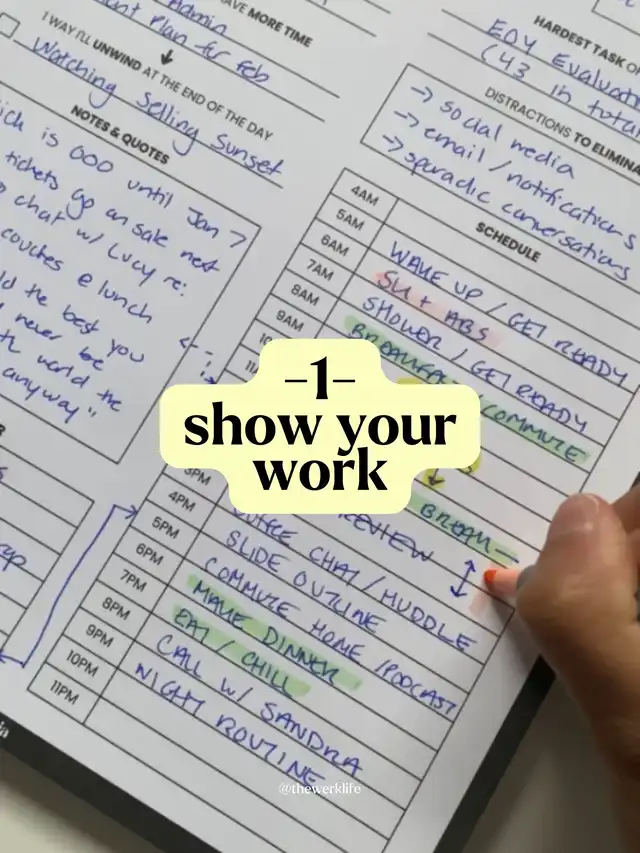 AVE MORE TIME
Admin
Plan for Feb
1 WAY I'LL UNWIND AT THE END OF THE DAY
Watching Selling Sunset
NOTES & QUOTES
is 000 until Jan 7
tickets go on sale next
chat w/ Lucy re:
couches @ lunch
the best you
never be
world the
anyway"
HARDEST TASK O
EOY Evaluat
(43 in tot
DISTRACTIONS TO ELIMINA
→ social media
→ email / notifications
→ sporadic conversations
SCHEDULE
4AM
5AM
6AM WAKE UP / GET READY
7AM SU + ABS
8AM SHOWER / GET READY
9AM BREAKFA / COMMUTE
–1–
show your
work
BREAK
3PM REVIEW
4PM CHAT / HUDDLE
5PM SLIDE OUTLINE
6PM COMMUTE HOME / PODCAST
7PM MAKE DINNER
8PM EAT / CHILL
9PM CALL W/ SANDRA
10PM NIGHT ROUTINE
11PM
@thewerklife